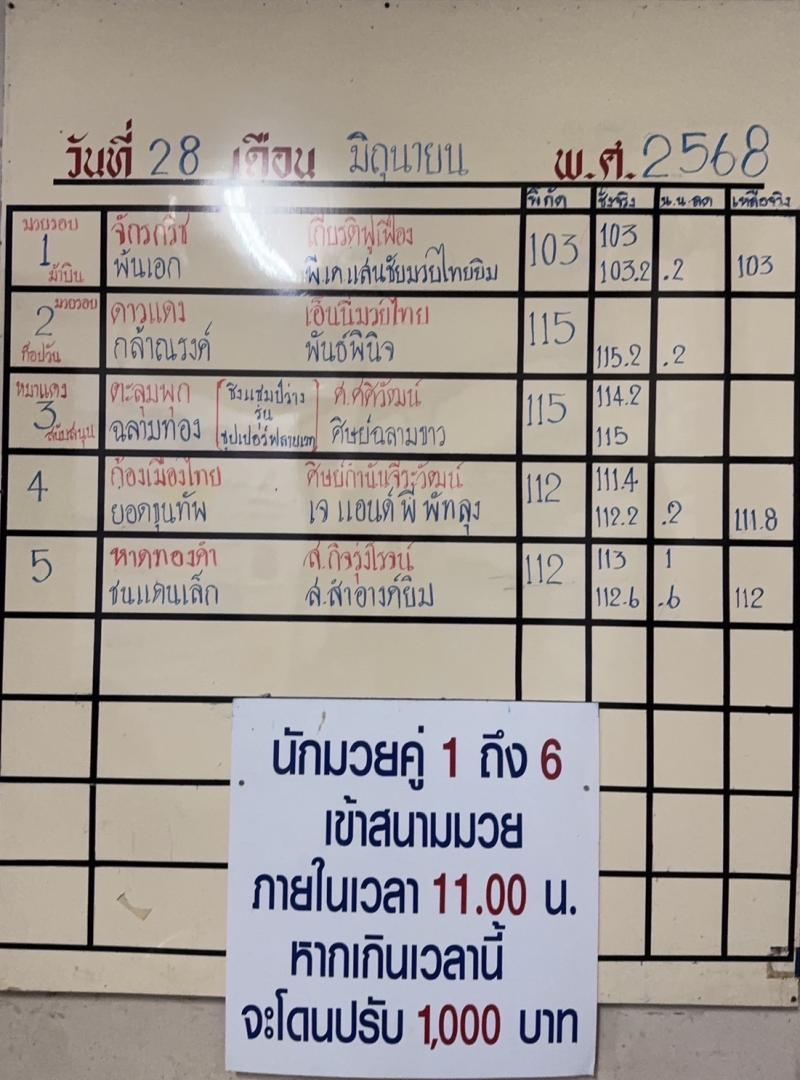 วันที่ 28 เดือน มิถุนายน พ.ศ. 2568
พิกัด ชั่งจริง น.น.ลด เหลือจริง
มวยรอบ
1
ม้าบิน
จักรกริช เกียรติฟูเฟื่อง
พันเอก พี.เค แสนชัยมวยไทยยิม
103
103
103.2 .2 103
มวยรอบ
2
ท็อปวัน
ดาวแดง เอ็นนี่มวยไทย
กล้าณรงค์ พันธ์พินิจ
115
115.2 .2
หมาแดง
3
สนับสนุน
ตะลุมพุก ศ.ศศิวัฒน์
ฉลามทอง ศิษย์ฉลามขาว
ชิงแชมป์ว่าง
รุ่น
ซุปเปอร์ฟลายเวท
115
114.2
115
4
ก้องเมืองไทย ศิษย์กำนันจีระวัฒน์
ยอดขุนทัพ เจ แอนด์ พี พัทลุง
112
111.4
112.2 .2 111.8
5
หาดทองคำ ส.กิจรุ่งโรจน์
ชนแดนเล็ก ส.สำอางค์ยิม
112
113 1
112.6 .6 112
นักมวยคู่ 1 ถึง 6
เข้าสนามมวย
ภายในเวลา 11.00 น.
หากเกินเวลานี้
จะโดนปรับ 1,000 บาท